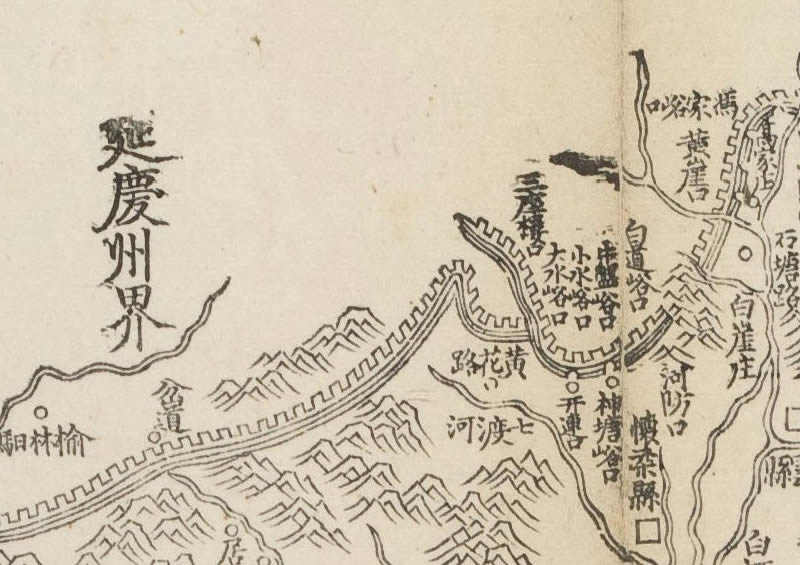 延慶州界
馮家峪口
黃崖口
三座樓口
大水峪口
小水峪口
白道峪口
石塘路
白崖庄
黃花路
七渡河
河防口
神塘峪口
开連口
懷柔縣
榆林馹
岔道
縣
居
白